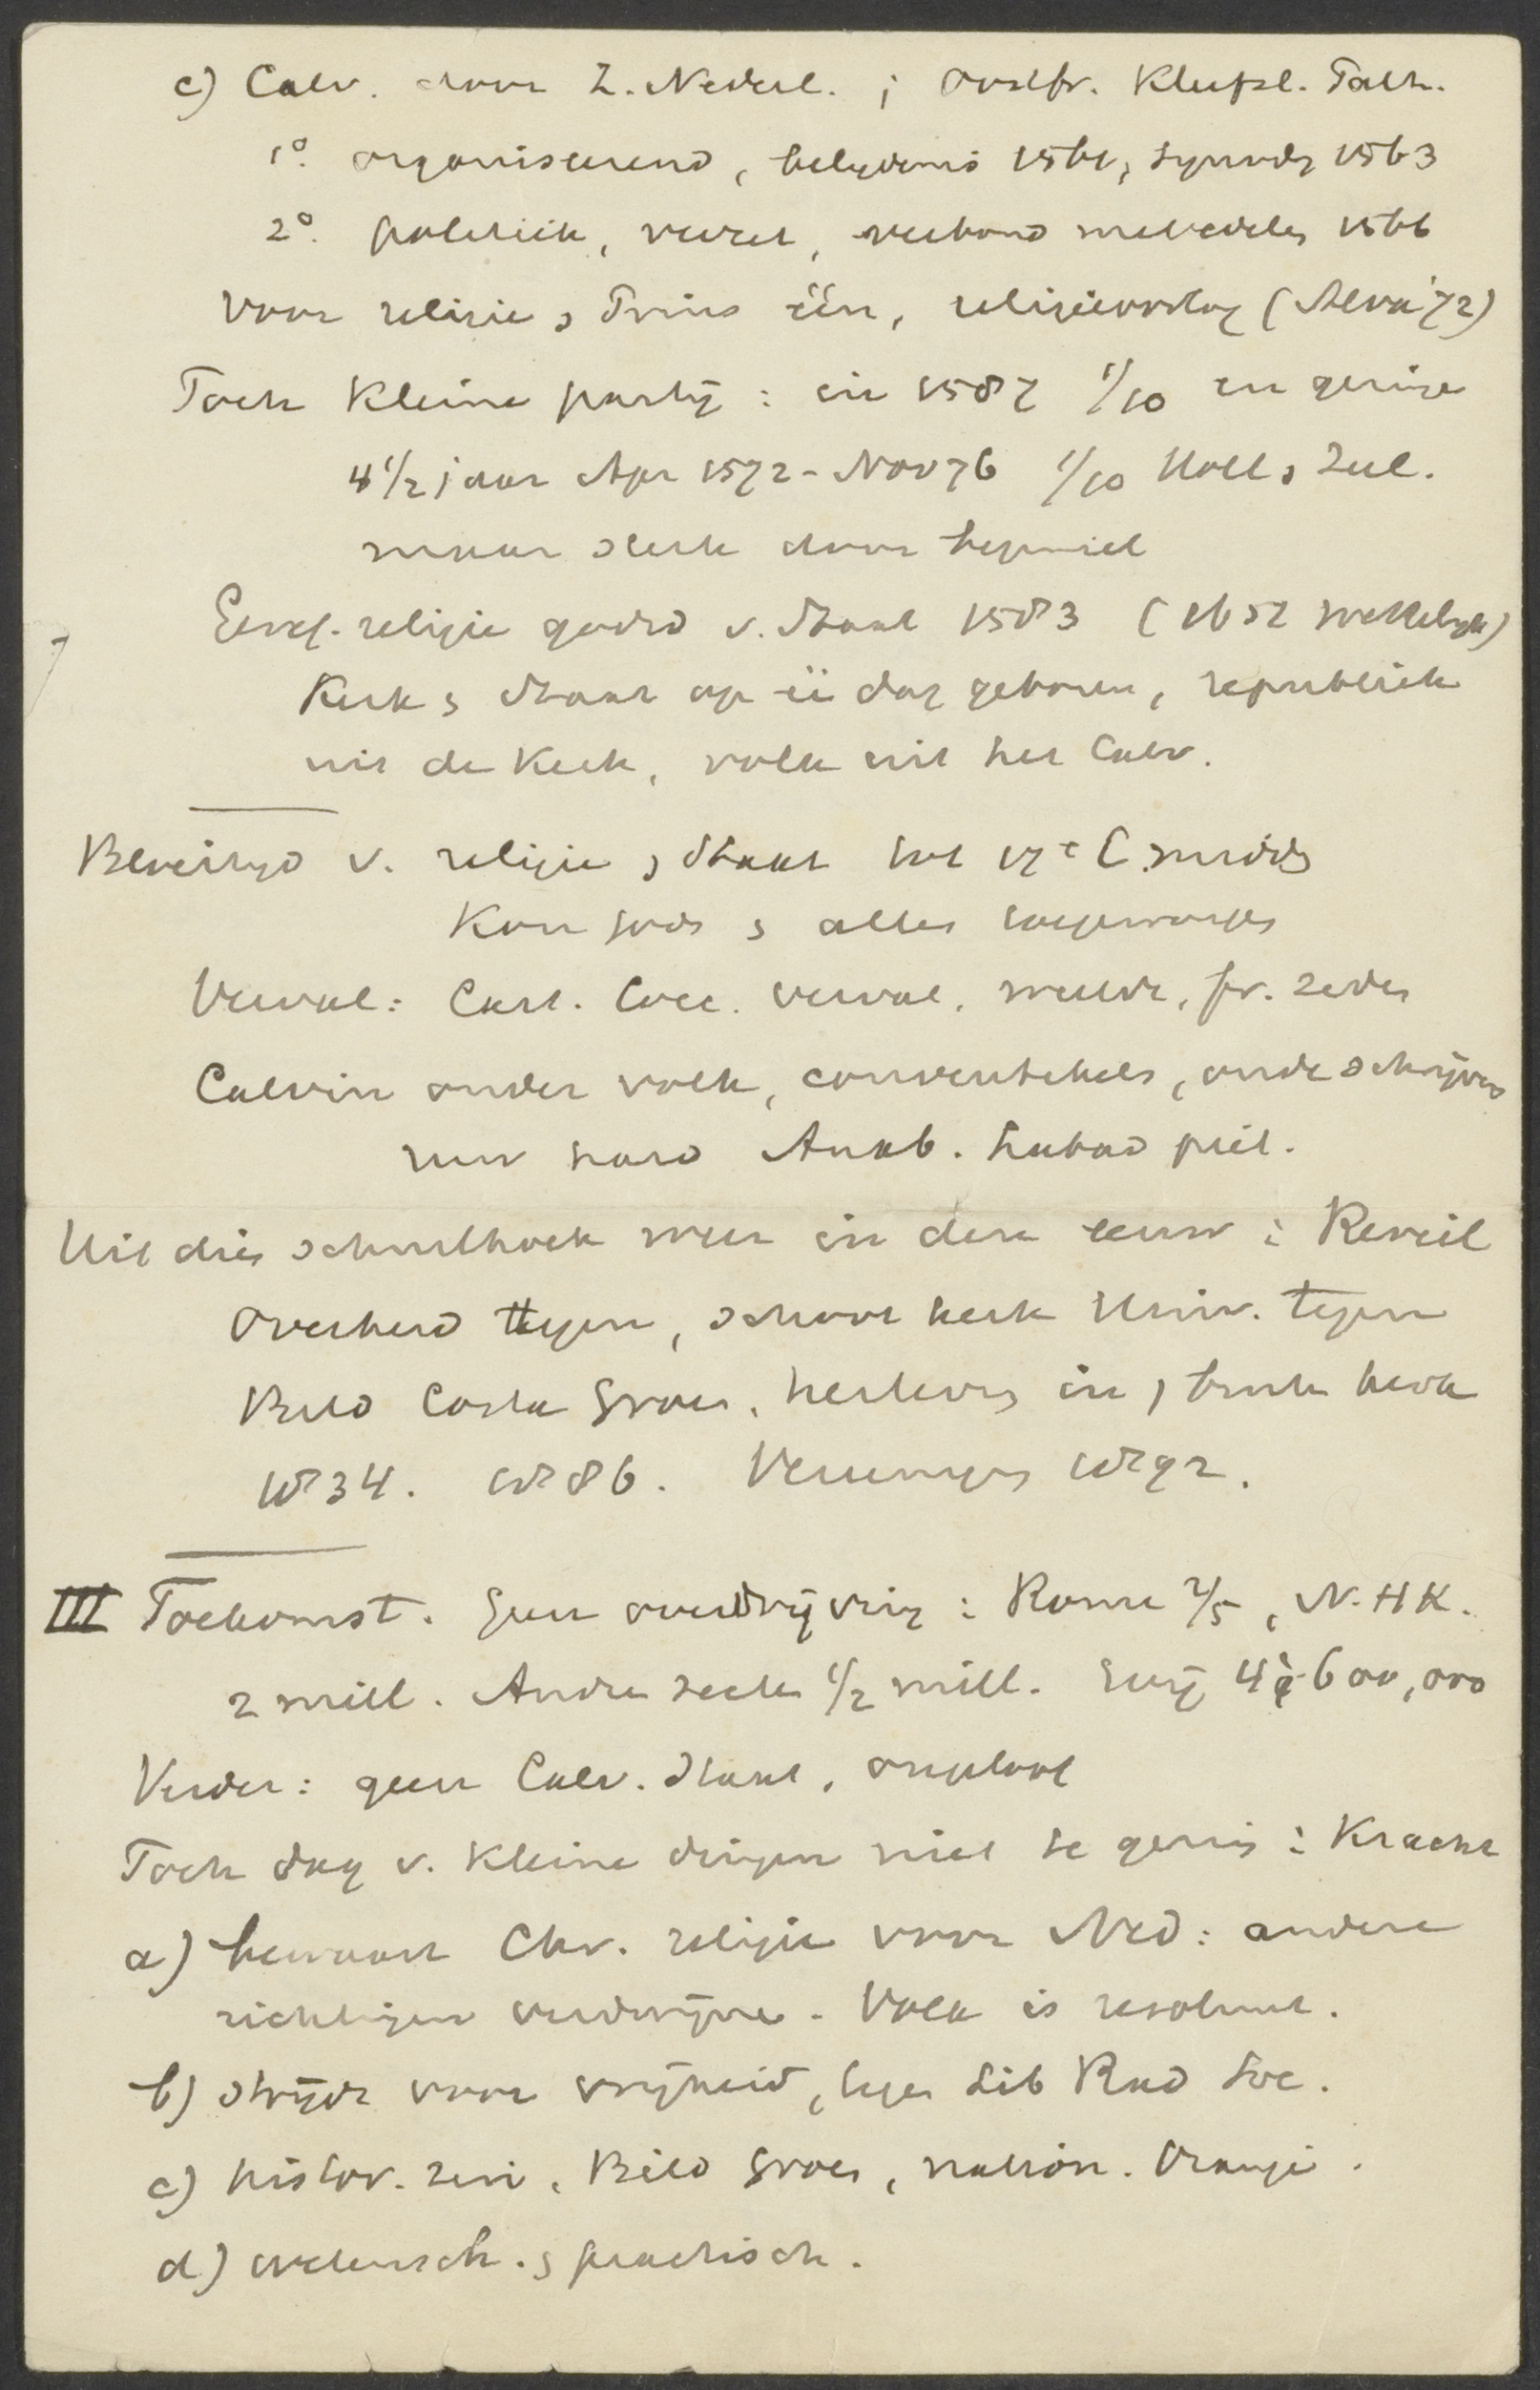 c) Calv. door Z. Nederl. ; Oostfr. Kleefsl. Palts.
1º. organiseerend, belijdenis 1561, synode 1563
2º. politiek, verzet, verbond met edelen 1566
Voor religie & Prins één, religieoorlog (Alva '72)
Toch Kleine partij : in 1587 1/10 en geringe
4 1/2 jaar Apr 1572 - Nov 76 1/10 Holl & Zeel.
maar sterk door beginsel
Geref. religie godsd v. Staat 1583 (1651 wettelijk)
Kerk & Staat op éé dag geboren, republiek
uit de Kerk, volk uit het Calv.
Bloeitijd v. religie & Staat tot 17e C. midden
Kon Gods & alles toegeworpen
Verval: Cart. Cocc. verval, weelde, fr. zeden
Calvin onder volk, conventikels, oude schrijvers
nw hard Anab. Labad piët.
Uit dien schuilhoek weer in deze eeuw : Reveil
Overheid tegen, school kerk Univ. tegen
Bild Costa Groen, herleving in & buiten kerk
1834. 1886. Vereeniging 1892.
III Toekomst. Geen overdrijving : Rome 2/5, N. H K.
2 mill. Andre secten 1/2 mill. Wij 4 à 600,000
Verder: geen Calv. Staat,
Toch dag v. Kleine dingen niet te gering : Kracht
a) bewaart Chr. religie voor Ned : andere
richtingen verdwijnen. Volk is resoluut.
b) strijdt voor vrijheid, tegen Lib Rad Soc.
c) histor. zin, Bild Groen, nation. Oranje.
d) wetensch. & practisch.